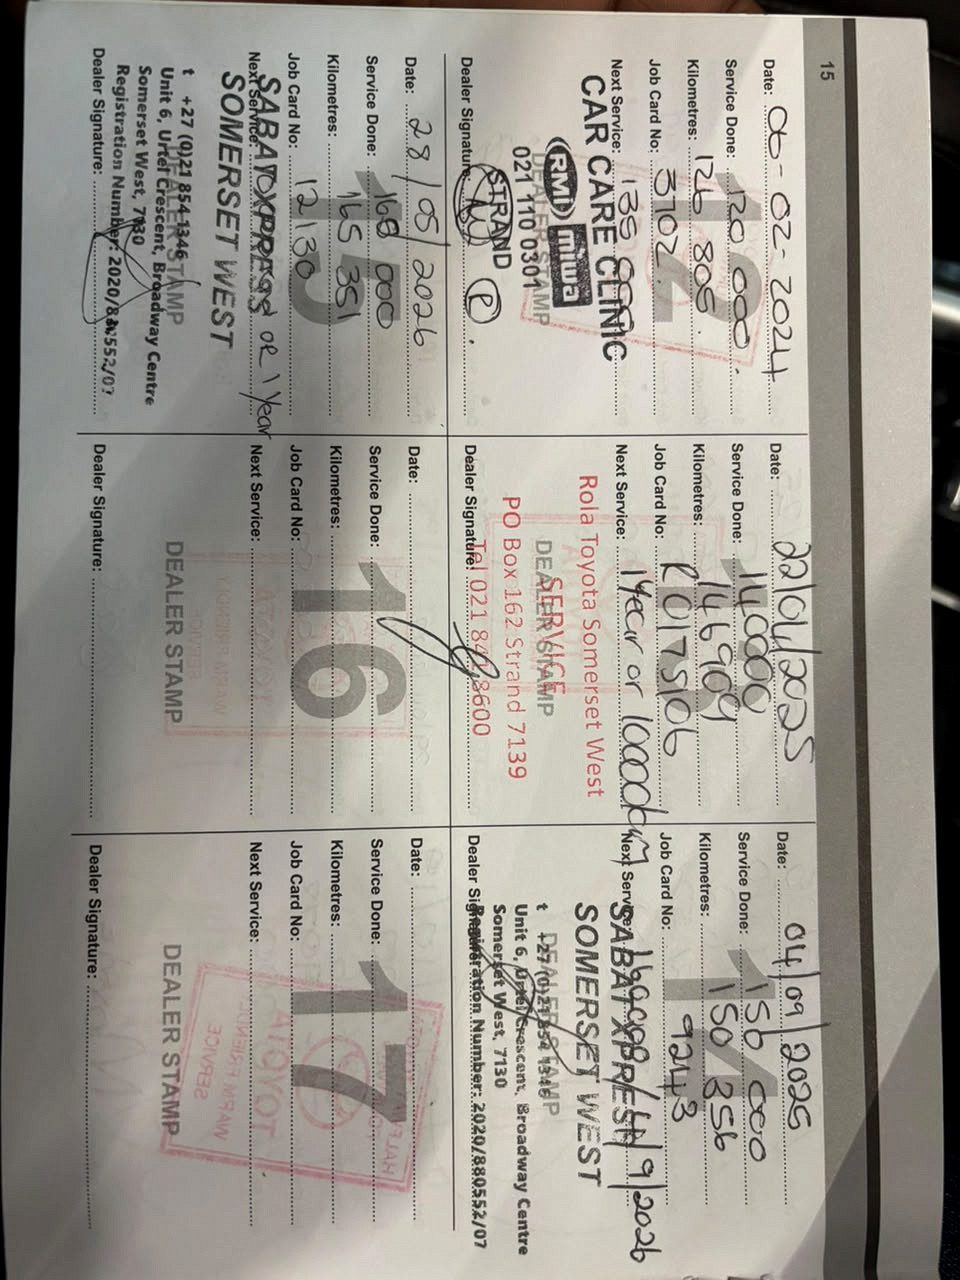 15
Date: 06-02-2024
Service Done: 120 000.
Kilometres: 126 805.
Job Card No: 3702.
Next Service: 135
12
CAR CARE CLINIC
RMI miwa
DEALER STAMP
021 110 0301
STRAND
Dealer Signature:
Date: 22/04/2025
Service Done: 140000
Kilometres: 146909
Job Card No:
Next Service: 1 Year or 10000km
Rola Toyota Somerset West
SERVICE
DEALER STAMP
PO Box 162 Strand 7139
Tel 021 841 8600
Dealer Signature:
Date: 04/09/2025
Service Done: 150 000
Kilometres: 150 356
Job Card No: 9243
Next Service:
14
SABAT XPRESS
SOMERSET WEST
DEALER STAMP
t +27 (0)21 854 1346
Unit 6, Urtel Crescent, Broadway Centre
Somerset West, 7130
Registration Number: 2020/880552/07
Dealer Signature:
Date: 28/05/2026
Service Done: 160 000
Kilometres: 165 351
Job Card No: 12130
Next Service: or 1 Year
15
SABAT XPRESS
SOMERSET WEST
DEALER STAMP
t +27 (0)21 854 1346
Unit 6, Urtel Crescent, Broadway Centre
Somerset West, 7130
Registration Number: 2020/880552/07
Dealer Signature:
Date:
Service Done:
Kilometres:
Job Card No:
Next Service:
16
DEALER STAMP
Dealer Signature:
Date:
Service Done:
Kilometres:
Job Card No:
Next Service:
17
DEALER STAMP
Dealer Signature: